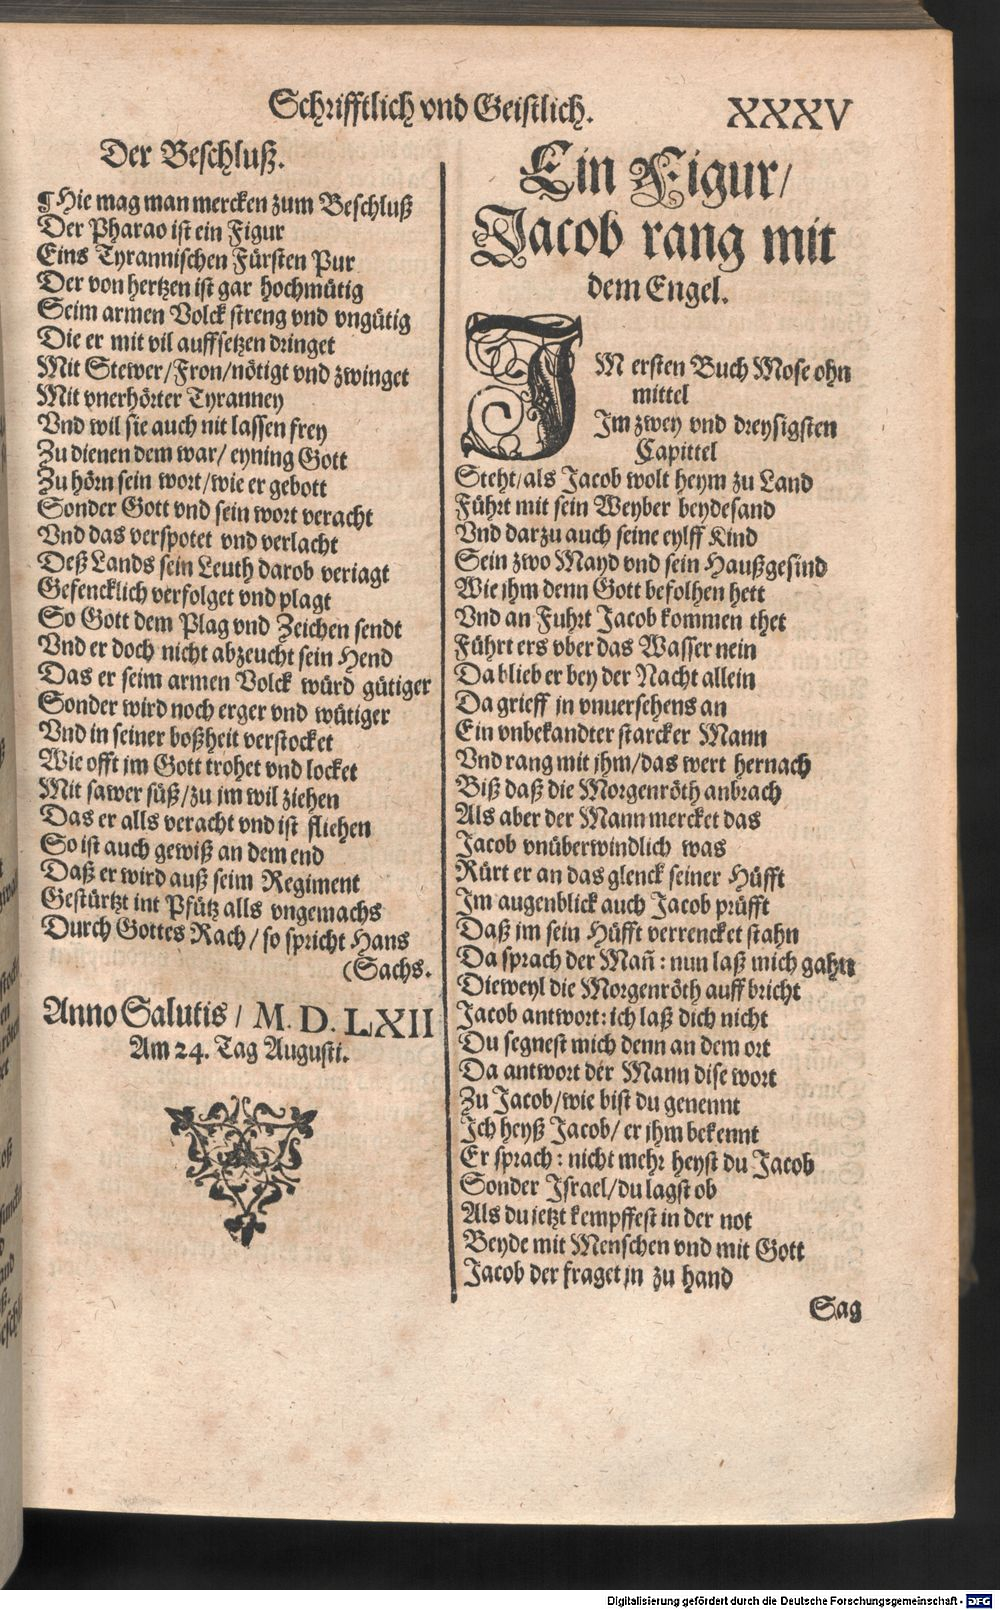 Schrifftlich vnd Geistlich. XXXV
Der Beschluß.
¶Hie mag man mercken zum Beschluß
Der Pharao ist ein Figur
Eins Tyrannischen Fürsten Pur
Der von hertzen ist gar hochmütig
Seim armen Volck streng vnd vngütig
Die er mit vil auffsetzen dringet
Mit Stewer/Fron/nötigt vnd zwinget
Mit vnerhörter Tyranney
Vnd wil sie auch nit lassen frey
Zu dienen dem war/ eyning Gott
Zu hörn sein wort/wie er gebott
Sonder Gott vnd sein wort veracht
Vnd das verspotet vnd verlacht
Deß Lands sein Leuth darob veriagt
Gefencklich verfolget vnd plagt
So Gott dem Plag vnd Zeichen sendt
Vnd er doch nicht abzeucht sein Hend
Das er seim armen Volck würd gütiger
Sonder wird noch erger vnd wütiger
Vnd in seiner boßheit verstocket
Wie offt jm Gott trohet vnd locket
Mit sawer süß/zu jm wil ziehen
Das er alls veracht vnd ist fliehen
So ist auch gewiß an dem end
Daß er wird auß seim Regiment
Gestürtzt int Pfütz alls vngemachs
Durch Gottes Rach/ so spricht Hans
(Sachs.
Anno Salutis / M. D. LXII
Am 24. Tag Augusti.
Ein Figur/
Jacob rang mit
dem Engel.
IM ersten Buch Mose ohn
mittel
Im zwey vnd dreysigsten
Capittel
Steht/als Jacob wolt heym zu Land
Führt mit sein Weyber beydesand
Vnd darzu auch seine eylff Kind
Sein zwo Mayd vnd sein Haußgesind
Wie jhm denn Gott befolhen hett
Vnd an Fuhrt Jacob kommen thet
Führt ers vber das Wasser nein
Da blieb er bey der Nacht allein
Da grieff jn vnuersehens an
Ein vnbekandter starcker Mann
Vnd rang mit jhm/das wert hernach
Biß daß die Morgenröth anbrach
Als aber der Mann mercket das
Jacob vnüberwindlich was
Rürt er an das glenck seiner Hüfft
Im augenblick auch Jacob prüfft
Daß im sein Hüfft verrencket stahn
Da sprach der Mañ: nun laß mich gahn
Dieweyl die Morgenröth auff bricht
Jacob antwort: ich laß dich nicht
Du segnest mich denn an dem ort
Da antwort der Mann dise wort
Zu Jacob/wie bist du genennt
Ich heyß Jacob/ er jhm bekennt
Er sprach: nicht mehr heyst du Jacob
Sonder Israel/du lagst ob
Als du jetzt kempffest in der not
Beyde mit Menschen vnd mit Gott
Jacob der fraget jn zu hand
Sag
Digitalisierung gefördert durch die Deutsche Forschungsgemeinschaft - DFG